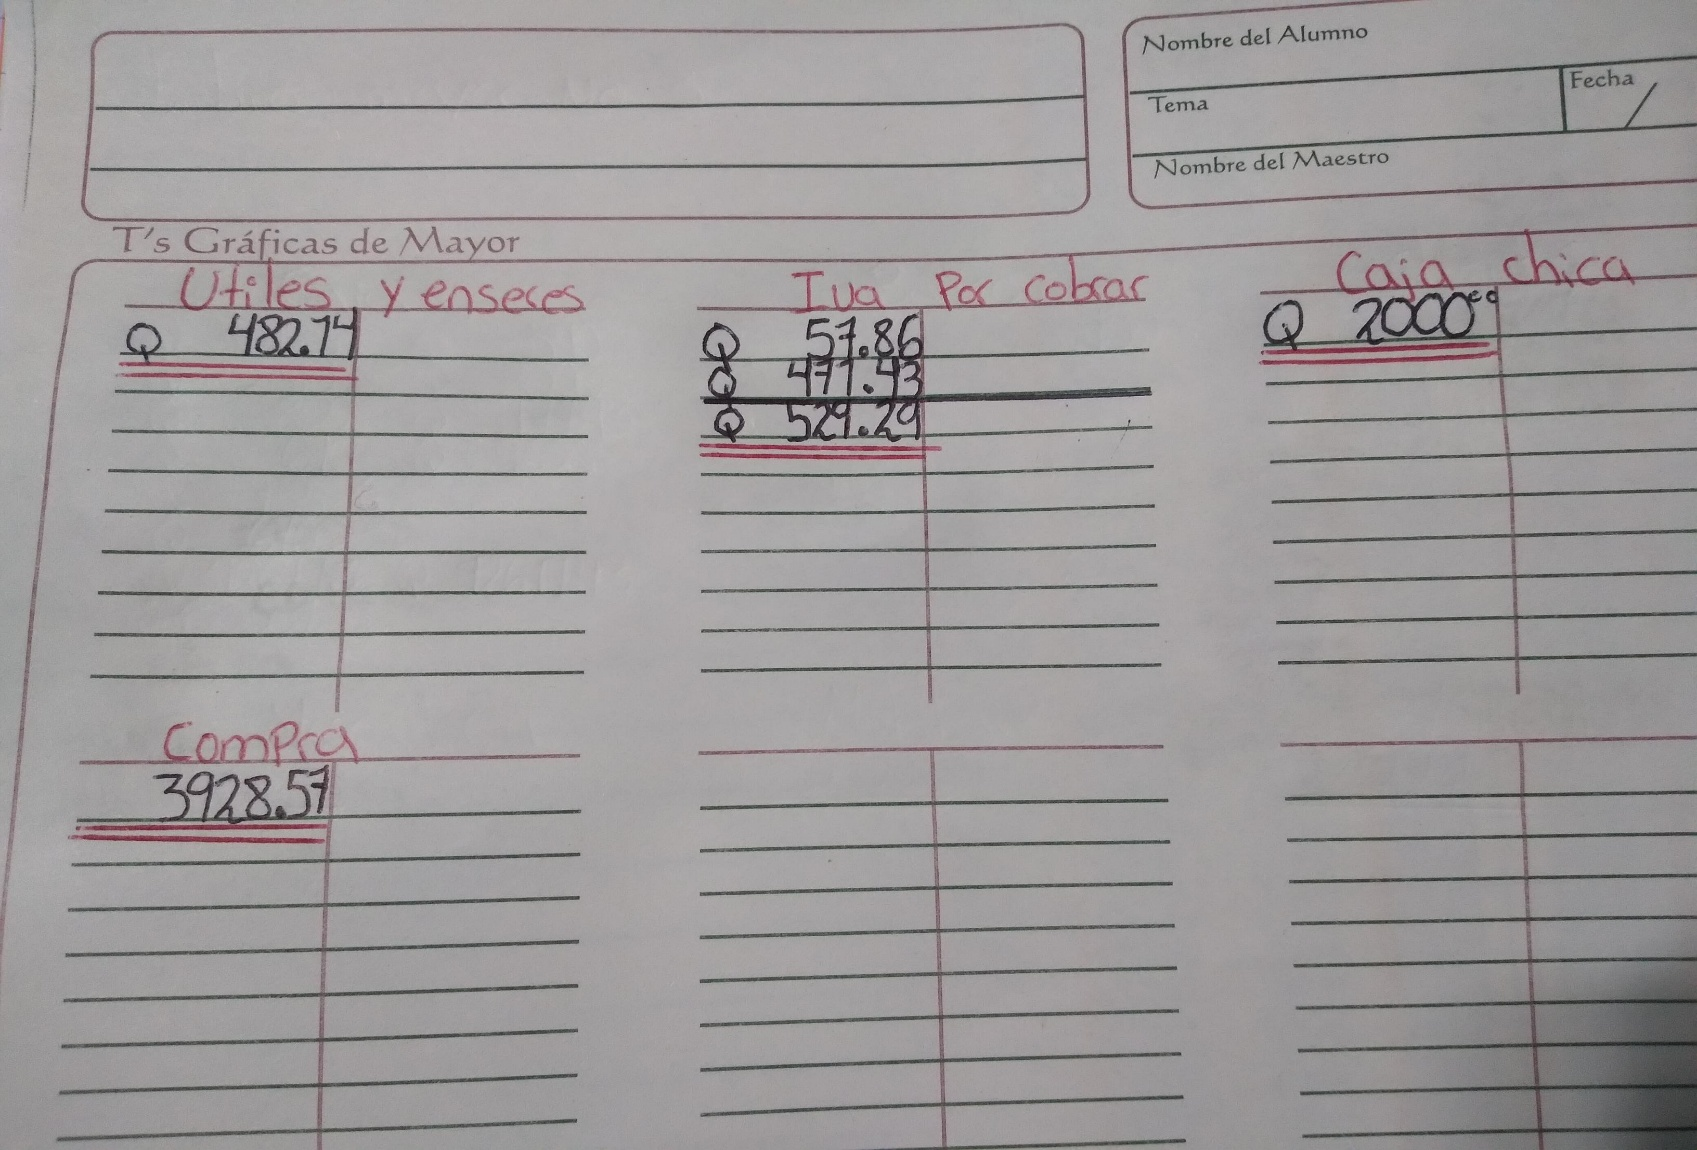 Nombre del Alumno
Tema
Fecha
/
Nombre del Maestro
T's Gráficas de Mayor
Utiles y enseres
Q 482.14
Iva Por cobrar
Q 57.86
Q 471.43
Q 529.29
Caja chica
Q 2000.00
Compra
3928.57